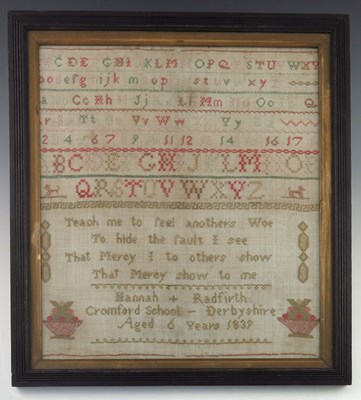 C D E G H I K L M O P Q S T U W X Y
o d e f g i j k m o p s t u v x y
a C c K h J j L l M m O o Q
r T t V v W w Y y
2 4 6 7 9 11 12 14 16 17
A B C D E G K J L M N O
Q R S T U V W X Y Z
Teach me to feel anothers Woe
To hide the fault I see
That Mercy I to others show
That Mercy show to me
Hannah + Radfirth
Cromford School - Derbyshire
Aged 6 Years 1839